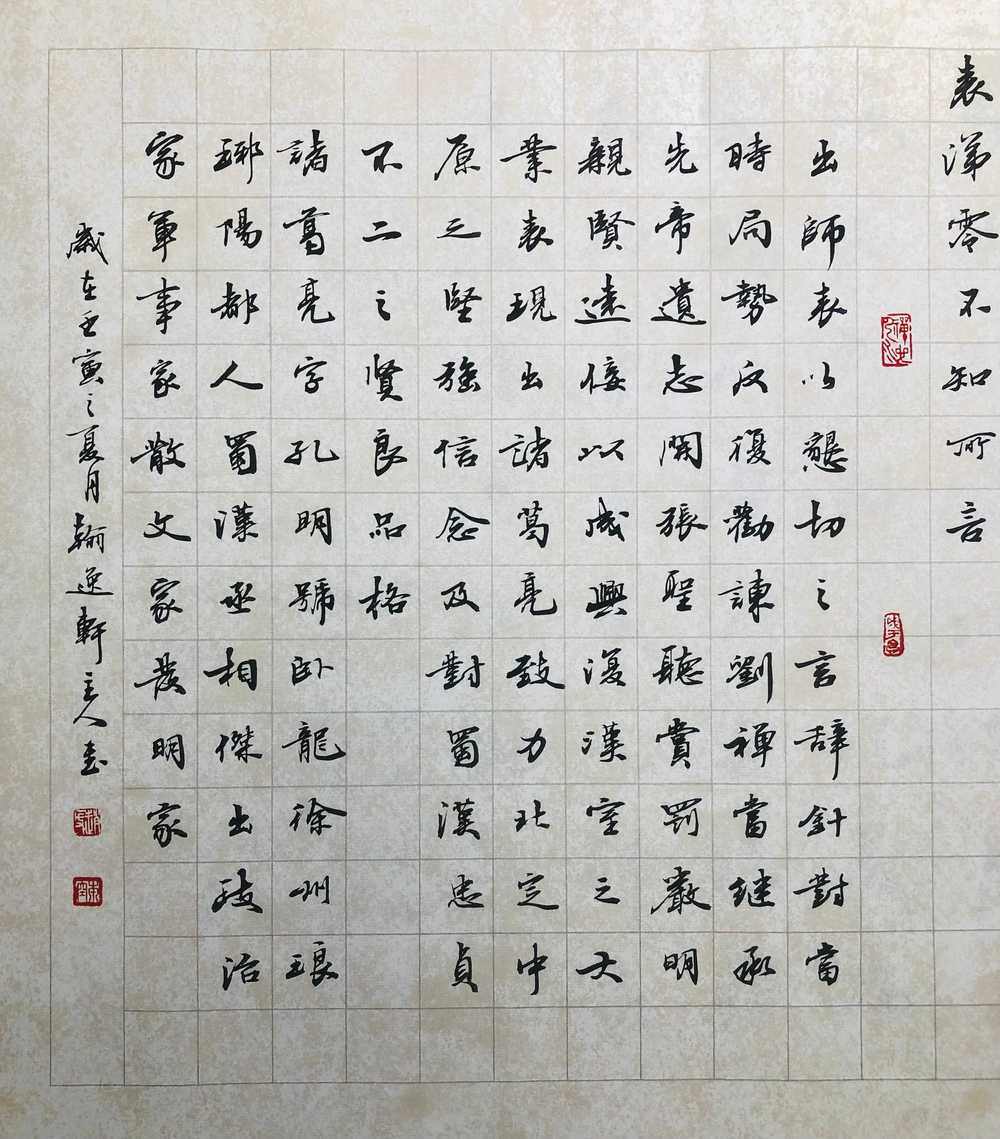 表涕零不知所言
出師表以懇切之言辞針對當
時局勢反復勸諫劉禅當继承
先帝遺志開張聖聽賞罰嚴明
親賢遠佞以成興復漢室之大
業表現出諸葛亮致力北定中
原之堅強信念及對蜀漢忠貞
不二之賢良品格
諸葛亮字孔明號卧龍徐州琅
琊陽都人蜀漢丞相傑出政治
家軍事家散文家發明家
歲在壬寅之夏月翰逸軒主人書